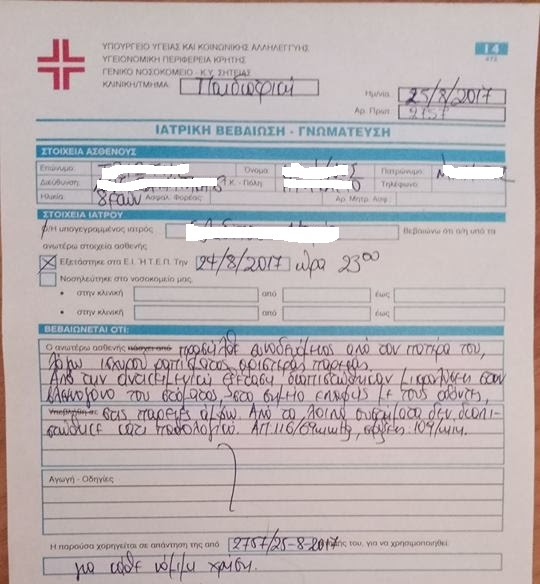 ΥΠΟΥΡΓΕΙΟ ΥΓΕΙΑΣ ΚΑΙ ΚΟΙΝΩΝΙΚΗΣ ΑΛΛΗΛΕΓΓΥΗΣ
ΥΓΕΙΟΝΟΜΙΚΗ ΠΕΡΙΦΕΡΕΙΑ ΚΡΗΤΗΣ
ΓΕΝΙΚΟ ΝΟΣΟΚΟΜΕΙΟ - Κ.Υ. ΣΗΤΕΙΑΣ
ΚΛΙΝΙΚΗ/ΤΜΗΜΑ: Παιδιατρική
14
Ημ/νία 25/8/2017
Αρ. Πρωτ. 2757
ΙΑΤΡΙΚΗ ΒΕΒΑΙΩΣΗ - ΓΝΩΜΑΤΕΥΣΗ
ΣΤΟΙΧΕΙΑ ΑΣΘΕΝΟΥΣ
Επώνυμο: Όνομα: Πατρώνυμο:
Διεύθυνση: Τ.Κ. - Πόλη Τηλέφωνο:
Ηλικία 8 ετών Ασφαλ. Φορέας: Αρ. Μητρ. Ασφ.
ΣΤΟΙΧΕΙΑ ΙΑΤΡΟΥ
Ο/Η υπογεγραμμένος ιατρός Βεβαιώνω ότι ο/η υπό τα
ανωτέρω στοιχεία ασθενής
Εξετάστηκε στα Ε.Ι. Ή Τ.Ε.Π. Την 24/8/2017 ώρα 23⁰⁰
Νοσηλεύτηκε στο νοσοκομείο μας.
• στην κλινική από έως
• στην κλινική από έως
ΒΕΒΑΙΩΝΕΤΑΙ ΟΤΙ:
Ο ανωτέρω ασθενής πάσχει από προσήλθε συνοδευόμενος από τον πατέρα του,
λόγω ισχυρού ραπίσματος αριστεράς παρειάς.
Από την αντικειμενική εξέταση διαπιστώθηκαν μικρολύσεις στον
βλεννογόνο του στόματος, στο σημείο επαφής με τους οδόντες,
Υπεβλήθη σε στις παρειές άμφω. Από τα λοιπά συστήματα δεν διαπι-
στώθηκε κάτι παθολογικό. ΑΠ: 116/69 mmHg, σφύξεις: 104/min.
Αγωγή - Οδηγίες
Η παρούσα χορηγείται σε απάντηση της από 2757/25-8-2017 του, για να χρησιμοποιηθεί
για κάθε νόμιμη χρήση.